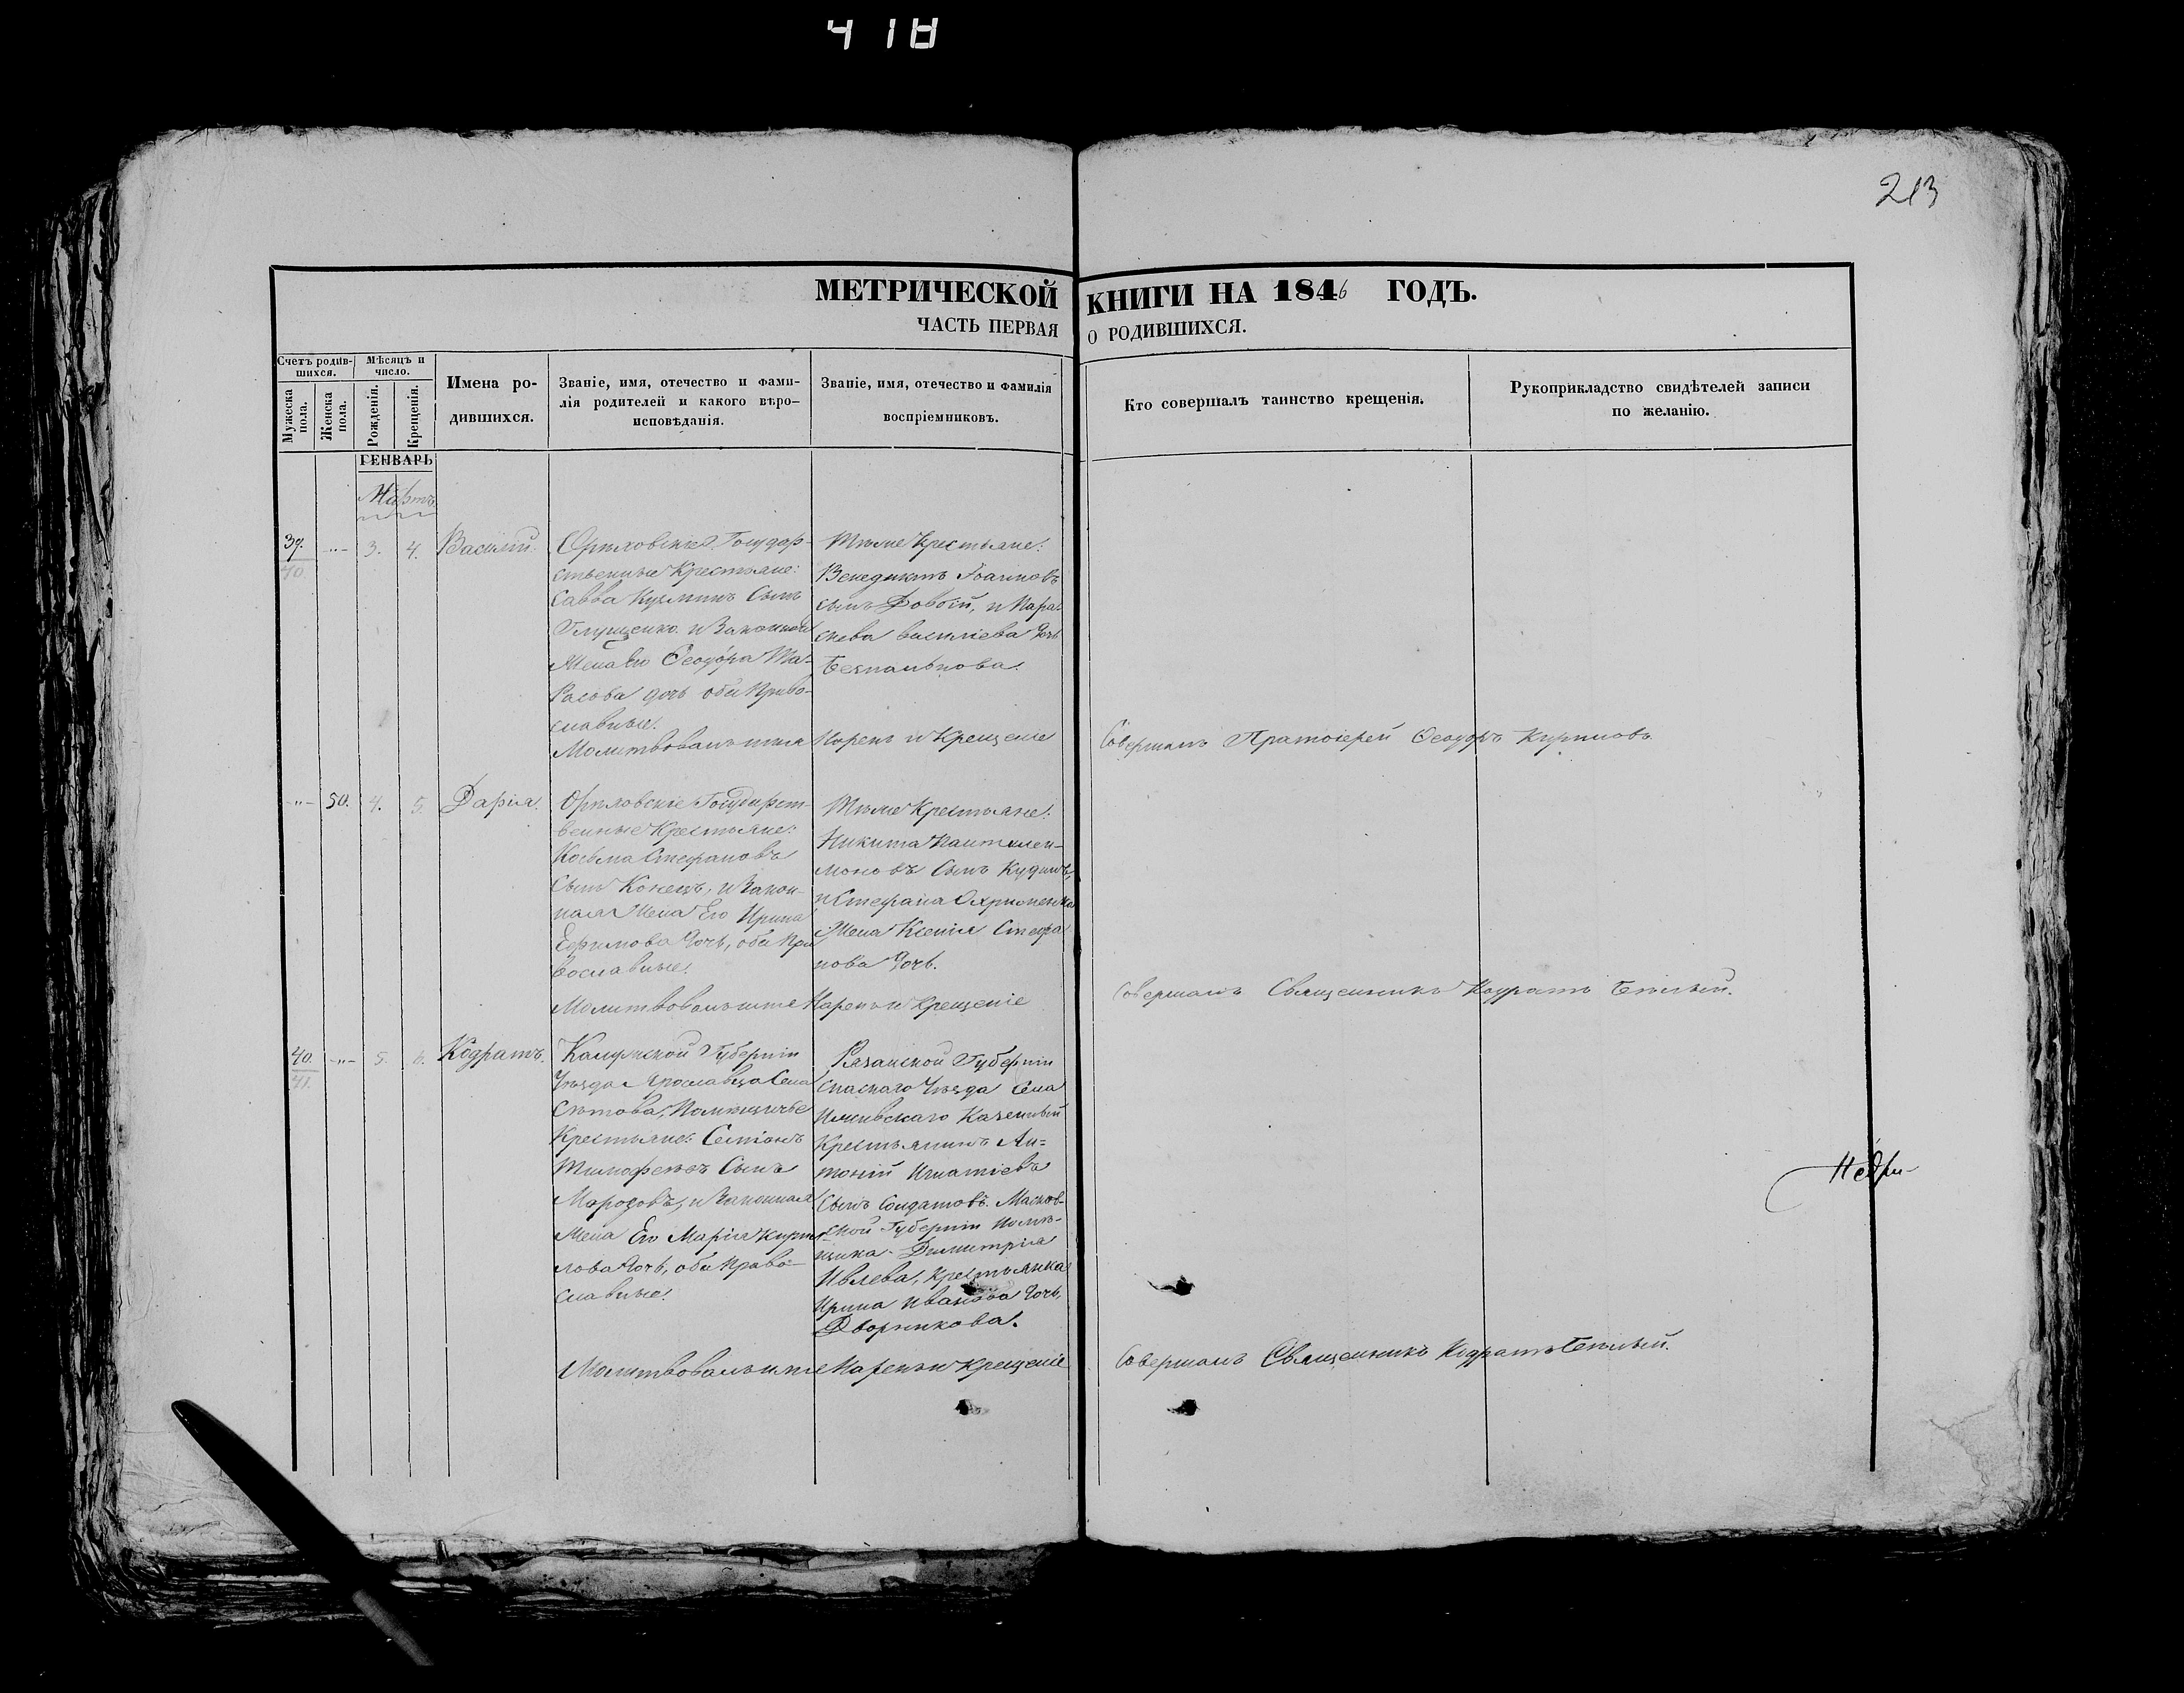 418
213
МЕТРИЧЕСКОЙ КНИГИ НА 1846 ГОДЪ.
ЧАСТЬ ПЕРВАЯ О РОДИВШИХСЯ.
Счетъ родив-
шихся.
Мужеска
пола.
Женска
пола.
Мѣсяцъ и
число.
Рожденія.
Крещенія.
Имена ро-
дившихся.
Званіе, имя, отечество и фами-
лія родителей и какого вѣро-
исповѣданія.
Званіе, имя, отечество и фамилія
воспріемниковъ.
Кто совершалъ таинство крещенія.
Рукоприкладство свидѣтелей записи
по желанію.
ГЕНВАРЬ
Мартъ
39. -"- 3. 4. Василій.
40
Орѣховскіе Государ-
ственные Крестьяне:
Савва Кузминъ Сынъ
Глущенко и Законная
Жена Его Ѳеодора Та-
расова дочь оба Право-
славные.
Тѣже Крестьяне:
Венедиктъ Іоанновъ
сынъ Довбій, и Пара
скева Василіева дочь
Безпалькова.
Молитвовалъ имя Нарекъ и Крещеніе
Совершалъ Пратоіерей Ѳеодоръ Кириловъ
-"- 50. 4. 5. Дарія.
Орѣховскіе Государст-
венные Крестьяне:
Косьма Стефановъ
Сынъ Конецъ, и Закон-
ная Жена Его Ирина
Ефимова дочь, оба Пра
вославные.
Тѣже Крестьяне:
Никита Пантелей-
моновъ Сынъ
и Стефана Охрименка
Жена Ксенія Стефа
нова дочь.
Молитвовалъ имя Нарекъ и Крещеніе
Совершалъ Священникъ Кодратъ Бѣлый.
40. -"- 5. 6. Кодратъ.
41.
Калужской Губерніи
Уѣзда Ярославца Села
Помѣщичьи
Крестьяне:
Тимофеевъ Сынъ
Марозовъ, и Законная
Жена Его Марія Кири
лова дочь, оба Право-
славные.
Рязанской Губерніи
Спаскаго Уѣзда Села
Ижевскаго Казенный
Крестьянинъ Ан=
тоній Игнатіевъ
Сынъ Солдатовъ. Масков-
ской Губерніи помѣ-
щика Димитрія
Ивлева, крестьянка
Ирина Иванова дочь,
Дворникова.
Молитвовалъ имя Нарекъ и крещеніе
Совершалъ Священникъ Кодратъ Бѣлый.